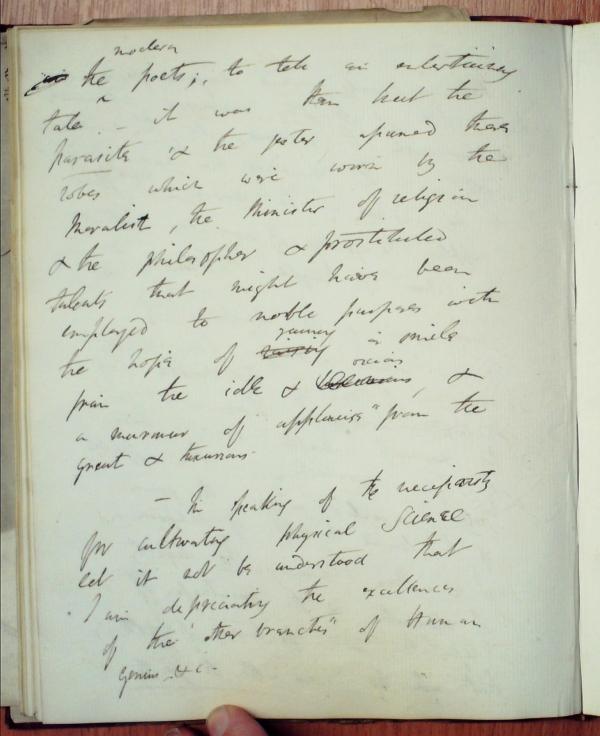 modern
the poets; to tell an entertaining
tale. – it was then that the
parasite & the jester assumed these
robes which were worn by the
Moralist, the Minister of religion
& the philosopher & prostituted
talents that might have been
employed to noble purposes with
the hope of gaining a smile
from the idle & vicious, &
a murmur of applause" from the
great & luxurious.
– In speaking of the necessity
for cultivating physical Science
let it not be understood that
I am depreciating the excellences
of the "other branches" of Human
Genius &c –